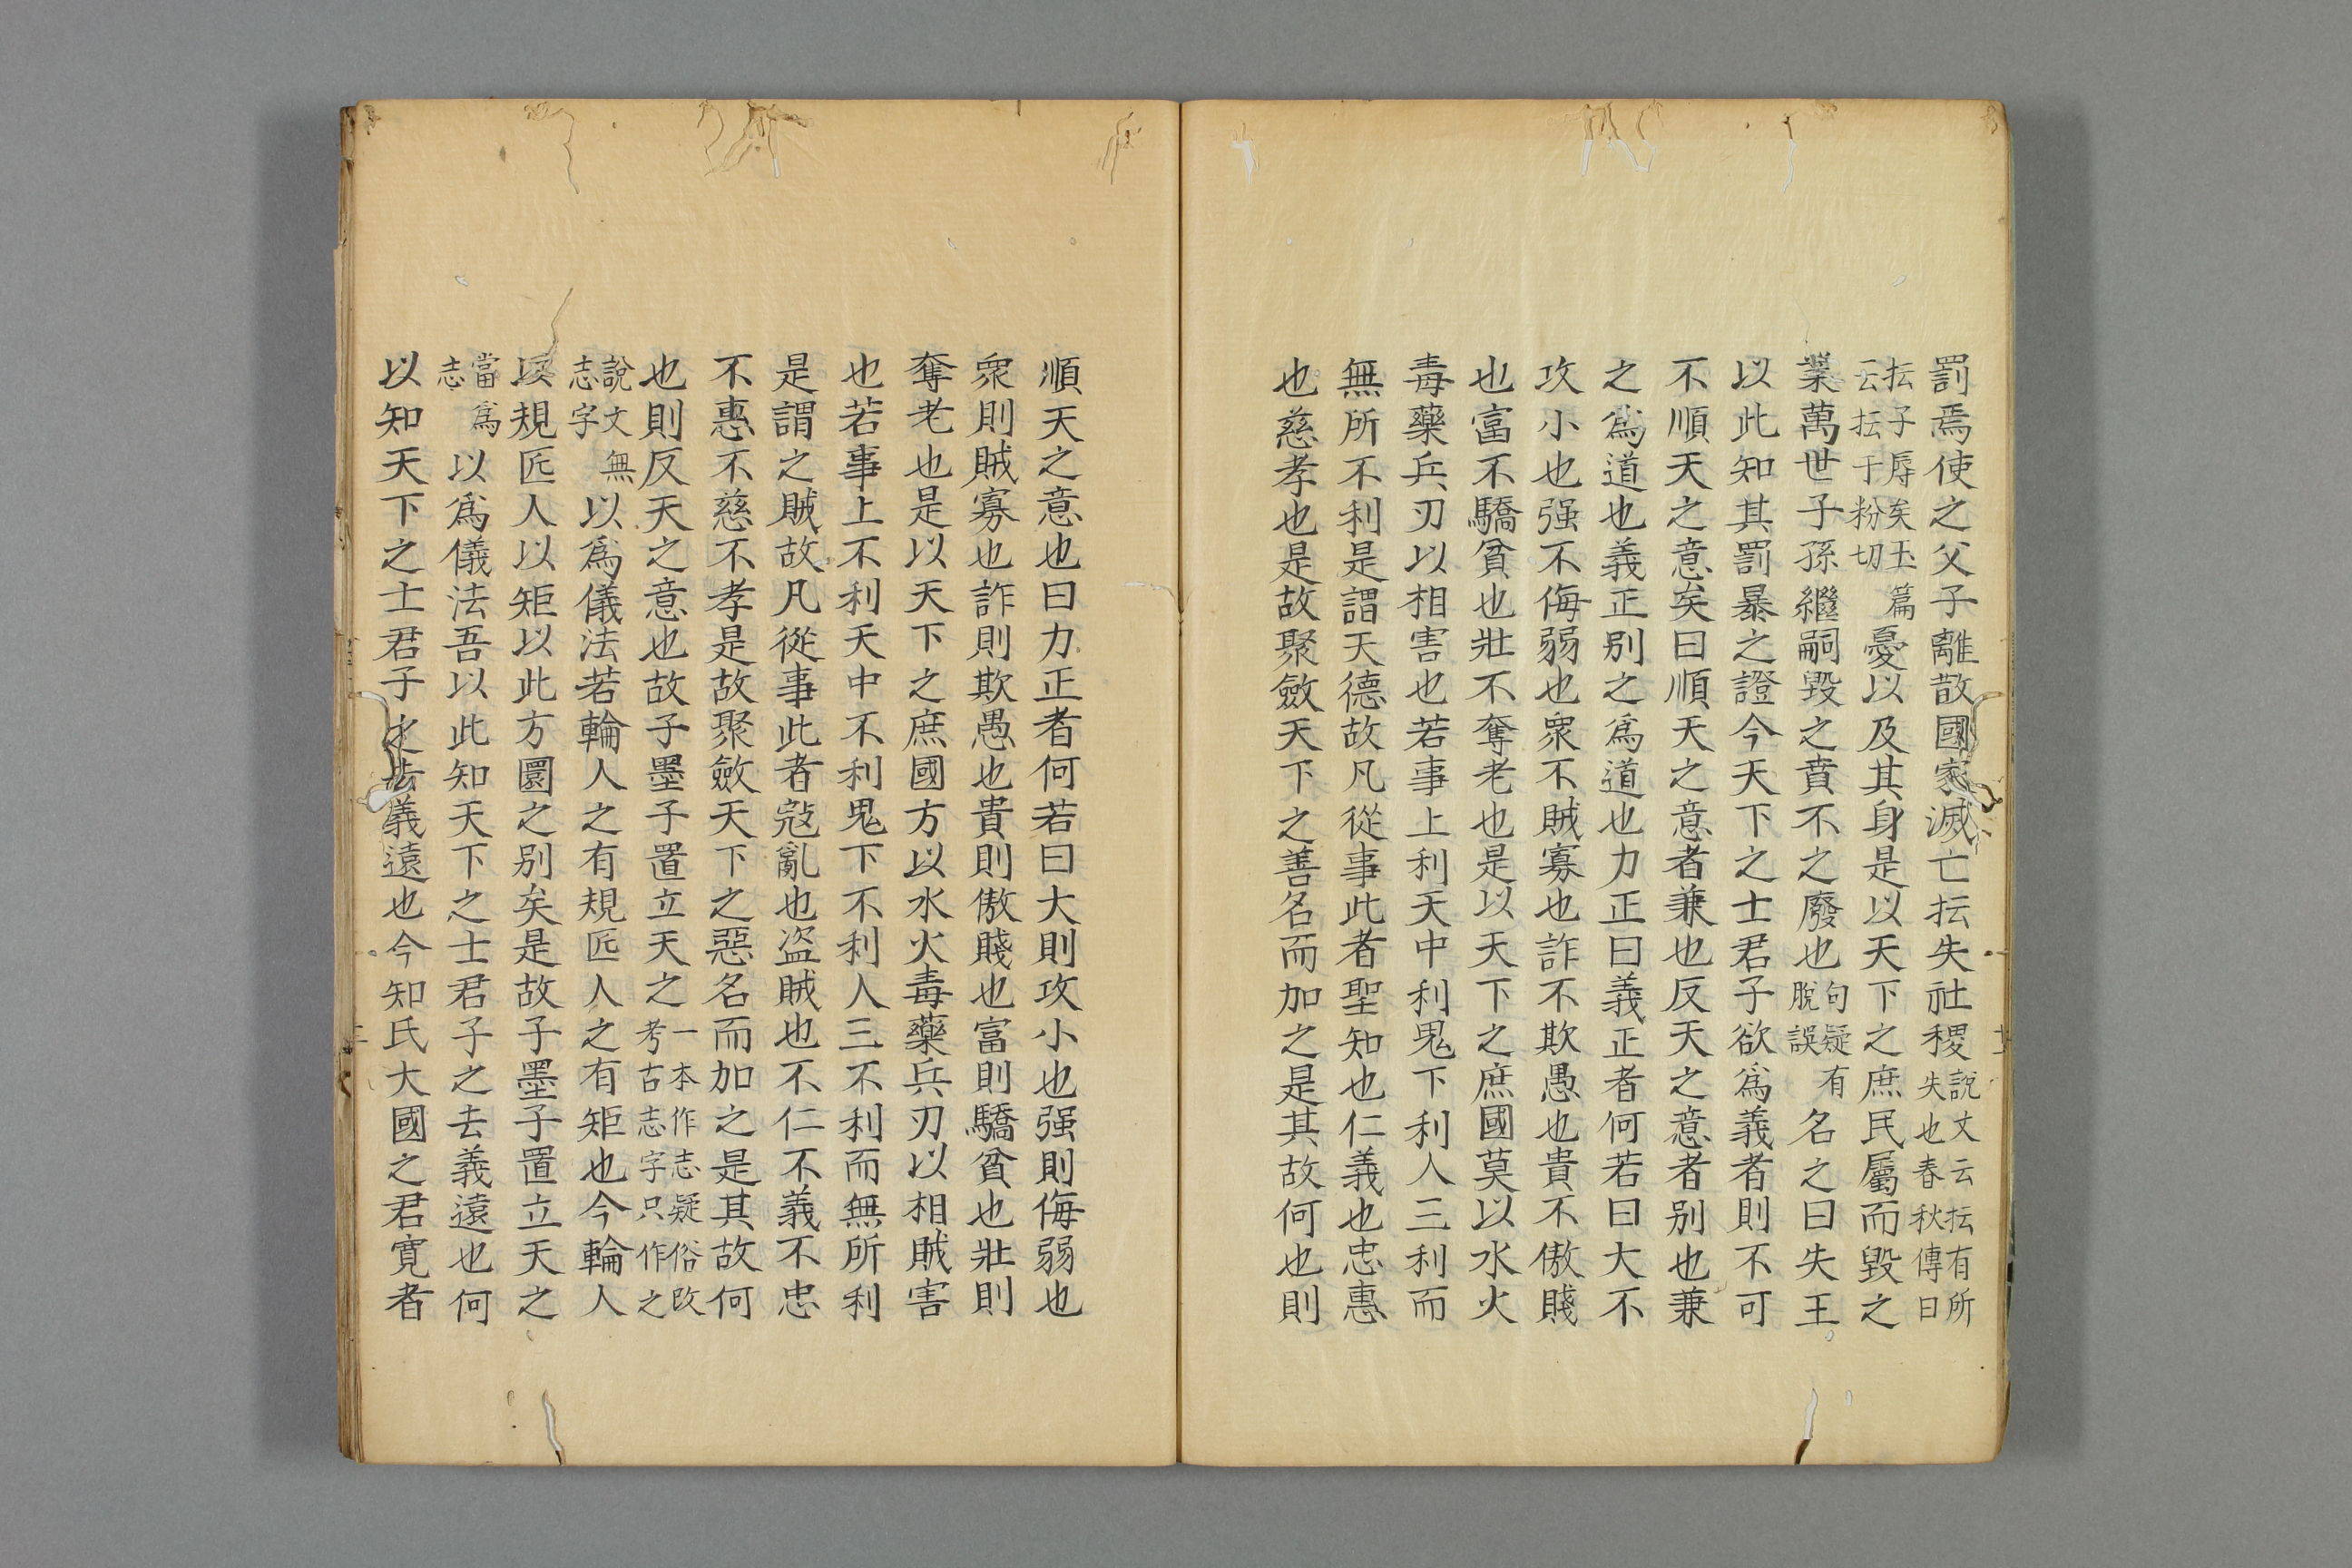 罰焉使之父子離散國家滅亡抎失社稷說文云抎有所失也春秋傳曰
抎子辱矣玉篇云抎于粉切憂以及其身是以天下之庶民屬而毀之
業萬世子孫繼嗣毀之賁不之廢也句疑有脫誤名之曰失王
以此知其罰暴之證今天下之士君子欲爲義者則不可
不順天之意矣曰順天之意者兼也反天之意者别也兼
之爲道也義正别之爲道也力正曰義正者何若曰大不
攻小也强不侮弱也衆不賊寡也詐不欺愚也貴不傲賤
也富不驕貧也壯不奪老也是以天下之庶國莫以水火
毒藥兵刃以相害也若事上利天中利鬼下利人三利而
無所不利是謂天德故凡從事此者聖知也仁義也忠惠
也慈孝也是故聚斂天下之善名而加之是其故何也則
順天之意也曰力正者何若曰大則攻小也强則侮弱也
衆則賊寡也詐則欺愚也貴則傲賤也富則驕貧也壯則
奪老也是以天下之庶國方以水火毒藥兵刃以相賊害
也若事上不利天中不利鬼下不利人三不利而無所利
是謂之賊故凡從事此者寇亂也盜賊也不仁不義不忠
不惠不慈不孝是故聚斂天下之惡名而加之是其故何
也則反天之意也故子墨子置立天之一本作志疑俗改考古志字只作之
說文無志字以爲儀法若輪人之有規匠人之有矩也今輪人
以規匠人以矩以此方圜之别矣是故子墨子置立天之
當爲志以爲儀法吾以此知天下之士君子之去義遠也何
以知天下之士君子之去義遠也今知氏大國之君寬者